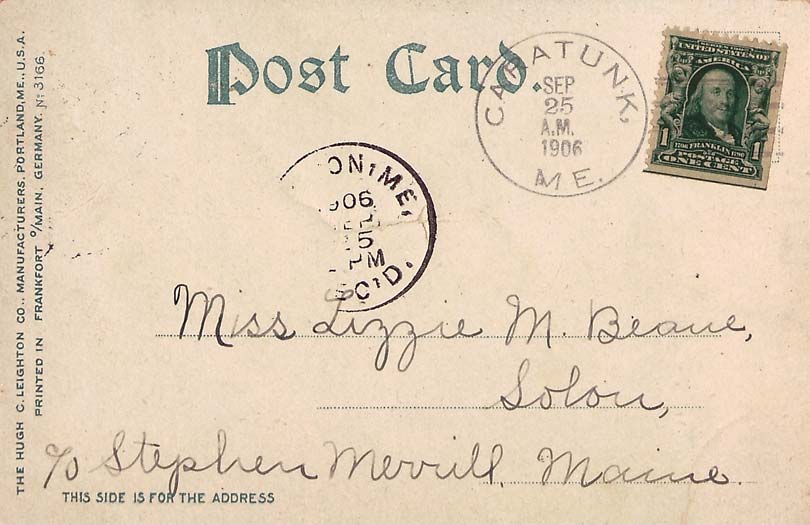 Post Card.
CARATUNK, ME.
SEP
25
A.M.
1906
SERIES 1902
UNITED STATES OF
AMERICA
1 1706 FRANKLIN 1790 1
POSTAGE
ONE CENT
ON, ME.
906
5
PM
C'D.
Miss Lizzie M. Beane,
Solon,
c/o Stephen Merrill, Maine.
THIS SIDE IS FOR THE ADDRESS
THE HUGH C. LEIGHTON CO., MANUFACTURERS, PORTLAND, ME., U.S.A.
PRINTED IN FRANKFORT o/MAIN, GERMANY. No 3166